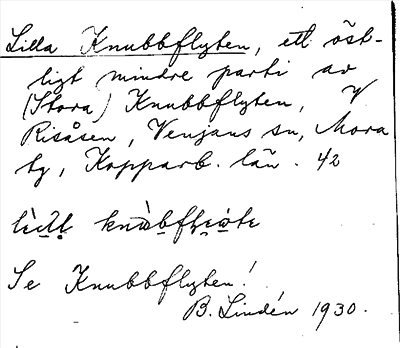 Lilla Knubbflyten, ett öst-
ligt mindre parti av
(Stora) Knubbflyten, V
Risåsen, Venjans sn, Mora
tg, Kopparb. län. 42
Se Knubbflyten!
B. Lindén 1930.